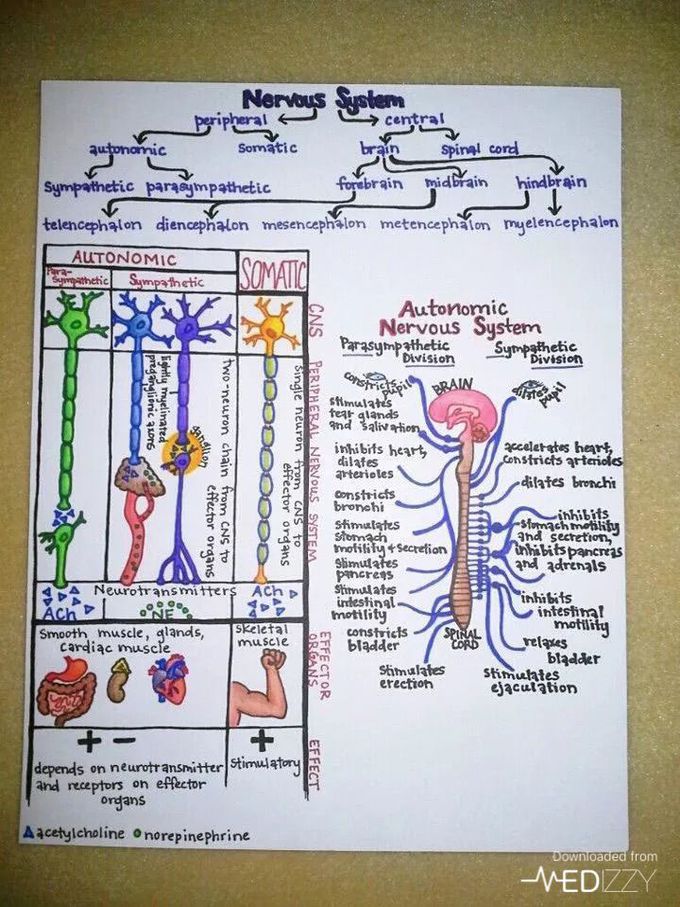 Nervous System
peripheral central
autonomic somatic brain spinal cord
Sympathetic parasympathetic forebrain midbrain hindbrain
telencephalon diencephalon mesencephalon metencephalon myelencephalon
AUTONOMIC
Para-
Sympathetic
Sympathetic
SOMATIC
CNS
PERIPHERAL NERVOUS SYSTEM
lightly myelinated
preganglionic axons
ganglion
two-neuron chain from CNS to
effector organs
single neuron from CNS to
effector organs
Neurotransmitters
ACh
NE
ACh
EFFECTOR
ORGANS
Smooth muscle, glands,
cardiac muscle
Skeletal
muscle
EFFECT
+ -
depends on neurotransmitter
and receptors on effector
organs
+
Stimulatory
acetylcholine norepinephrine
Autonomic
Nervous System
Parasympathetic
Division
Sympathetic
Division
constricts
pupil
BRAIN
dilates
pupil
stimulates
tear glands
and salivation
inhibits heart,
dilates
arterioles
constricts
bronchi
Stimulates
Stomach
motility + secretion
Stimulates
pancreas
Stimulates
intestinal
motility
constricts
bladder
Stimulates
erection
SPINAL
CORD
accelerates heart,
constricts arterioles
dilates bronchi
inhibits
stomach motility
and secretion,
inhibits pancreas
and adrenals
inhibits
intestinal
motility
relaxes
bladder
Stimulates
ejaculation
Downloaded from
MEDIZZY